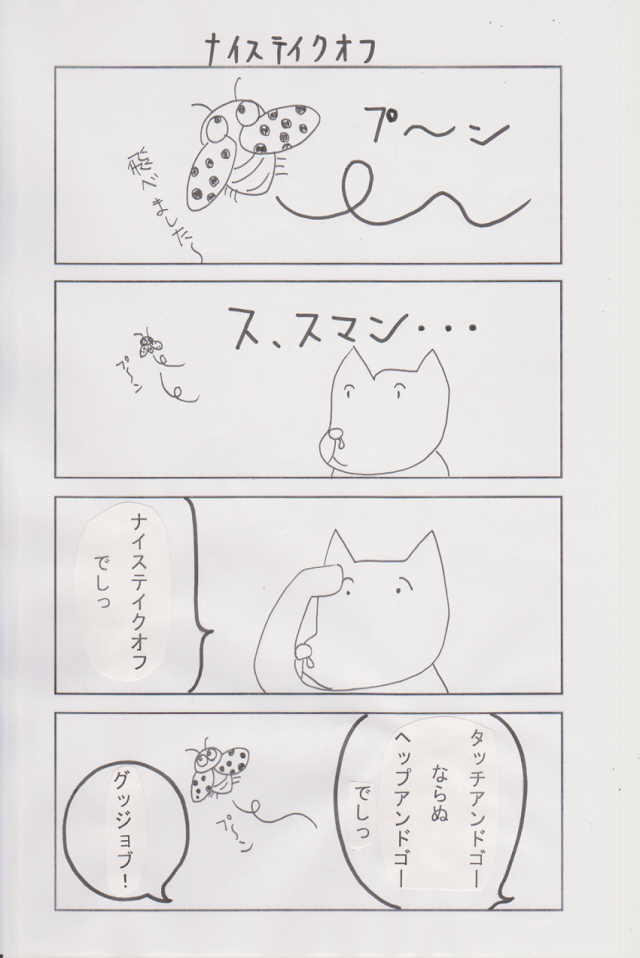 ナイステイクオフ
プ～ン
飛べました～
ス、スマン・・・
プ～ン
ナイステイクオフ
でしっ
タッチアンドゴー
ならぬ
ヘップアンドゴー
でしっ
プ～ン
グッジョブ！